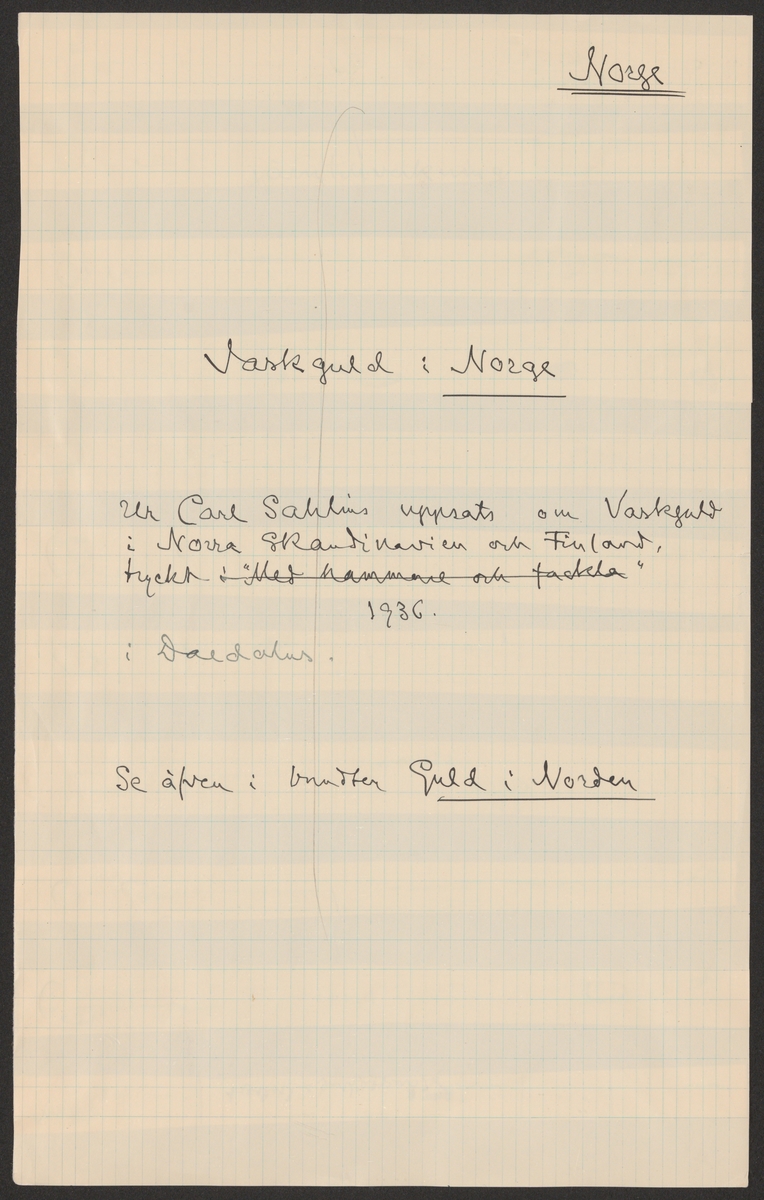 Norge
Vaskguld i Norge
Ur Carl Sahlins uppsats om Vaskguld
i Norra Skandinavien och Finland,
tryckt i "Med hammare och fackla"
1936.
i Daedalus.
Se äfven i bundten Guld i Norden